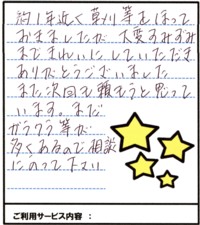 約1年近く草刈等をほって
おきましたが 大変すみずみ
まできれいにしていただき
ありがとうございました
また次回も頼もうと思って
います。まだ
ガラクタ等が
多くあるので相談
にのって下さい
ご利用サービス内容: